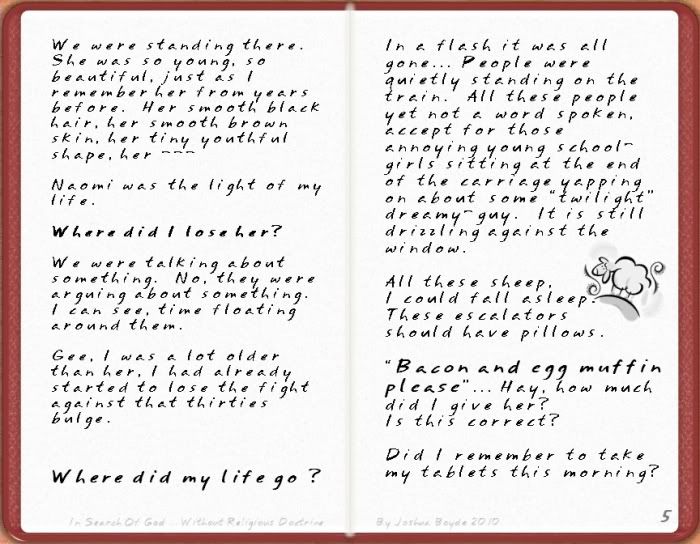 We were standing there.
She was so young, so
beautiful, just as I
remember her from years
before. Her smooth black
hair, her smooth brown
skin, her tiny youthful
shape, her ~~~
Naomi was the light of my
life.
Where did I lose her?
We were talking about
something. No, they were
arguing about something.
I can see, time floating
around them.
Gee, I was a lot older
than her, I had already
started to lose the fight
against that thirties
bulge.
Where did my life go ?
In Search Of God ... Without Religious Doctrine
In a flash it was all
gone... People were
quietly standing on the
train. All these people
yet not a word spoken,
accept for those
annoying young school-
girls sitting at the end
of the carriage yapping
on about some "twilight"
dreamy-guy. It is still
drizzling against the
window.
All these sheep,
I could fall asleep.
These escalators
should have pillows.
"Bacon and egg muffin
please"... Hay, how much
did I give her?
Is this correct?
Did I remember to take
my tablets this morning?
By Joshua Boyde 2010
5